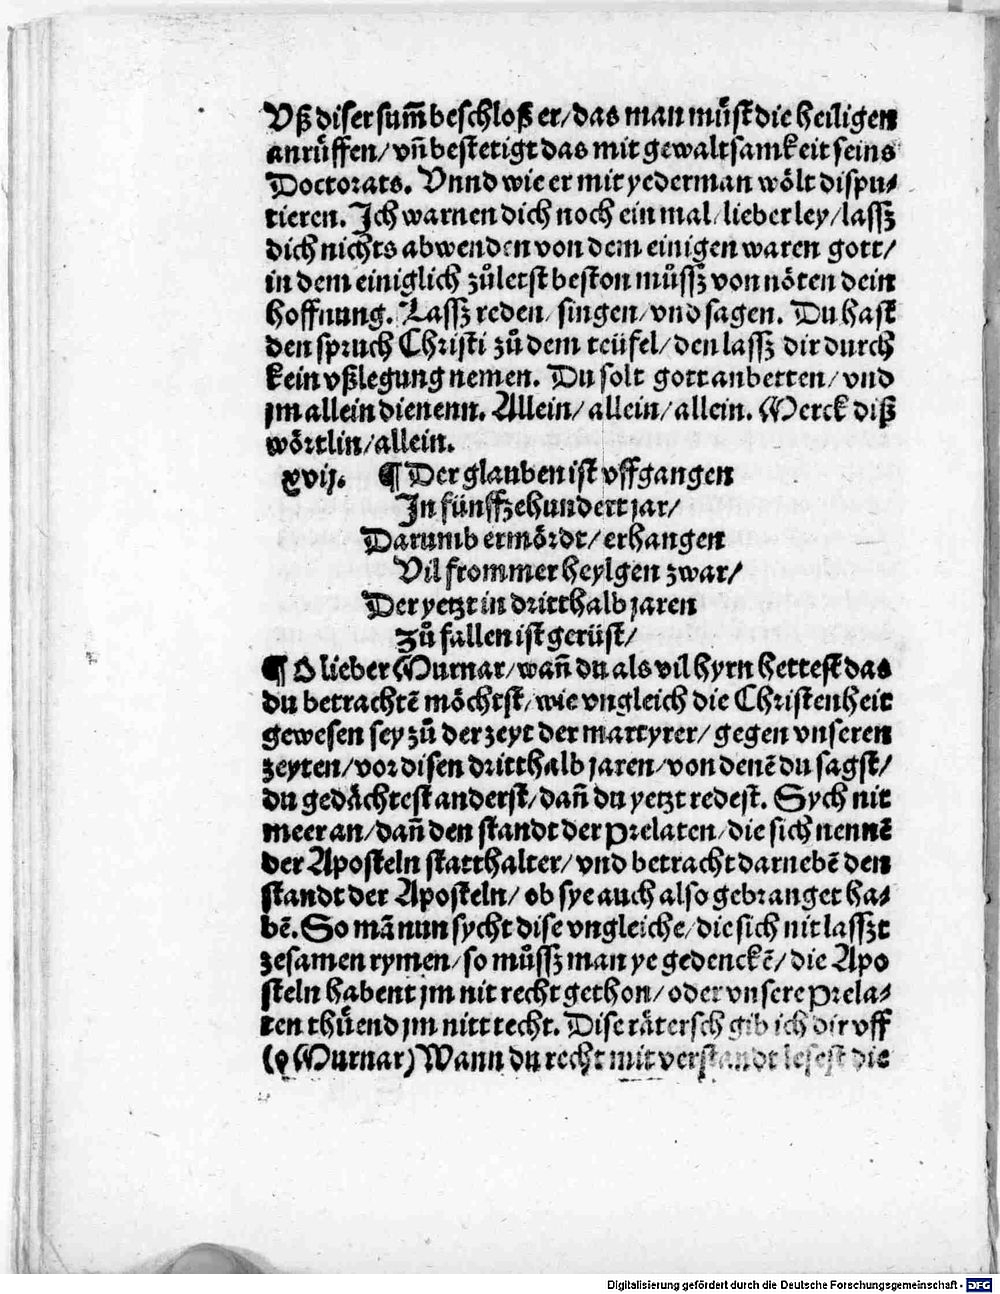 Vß diser sum̃ beschloß er/das man můst die heiligen
anrüffen/vñ bestetigt das mit gewaltsamkeit seins
Doctorats. Vnnd wie er mit yederman wölt dispu⸗
tieren. Ich warnen dich noch ein mal/lieber ley/lassz
dich nichts abwenden von dem einigen waren gott/
in dem einiglich zůletst beston můssz von nöten dein
hoffnung. Lassz reden/singen/vnd sagen. Du hast
den spruch Christi zů dem teüfel/den lassz dir durch
kein vßlegung nemen. Du solt gott anbetten/vnd
jm allein dienenn. Allein/allein/allein. Merck diß
wörtlin/allein.
xvij. ¶ Der glauben ist vffgangen
In fünffzehundert jar/
Darumb ermördt/erhangen
Vil frommer heylgen zwar/
Der yetzt in dritthalb jaren
zů fallen ist gerüst/
¶ O lieber Murnar/wañ du als vil hyrn hettest das
du betrachtẽ möchtst/wie vngleich die Christenheit
gewesen sey zů der zeyt der martyrer/gegen vnseren
zeyten/vor disen dritthalb jaren/von denẽ du sagst/
du gedächtest anderst/dañ du yetzt redest. Sych nit
meer an/dañ den standt der Prelaten/die sich nennẽ
der Aposteln statthalter/vnd betracht darnebẽ den
standt der Aposteln/ob sye auch also gebranget ha⸗
bẽ. So mã nun sycht dise vngleiche/die sich nit lasszt
zesamen rymen/so můssz man ye gedenckẽ/die Apo
steln habent jm nit recht gethon/oder vnsere Prela⸗
ten thüend jm nitt recht. Dise rätersch gib ich dir vff
(o Murnar) Wann du recht mit verstandt lesest die
Digitalisierung gefördert durch die Deutsche Forschungsgemeinschaft - DFG